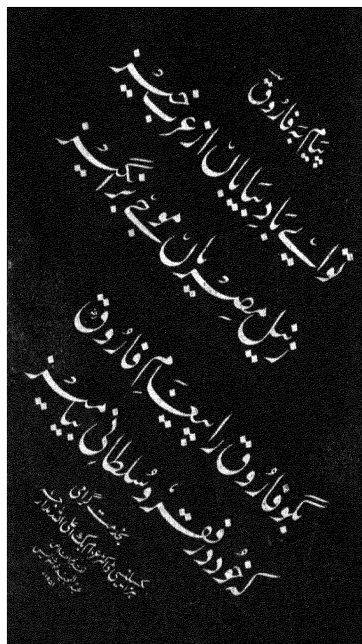 پیام بہ فاروقؔ
تو اے بادِ بیاباں از عرب خیز
ز نیلِ مصریاں موجے بر انگیز
بگو فاروق را پیغامِ فاروقؓ
کہ خود در فقر و سلطانی بیامیز
بخدمت گرامی